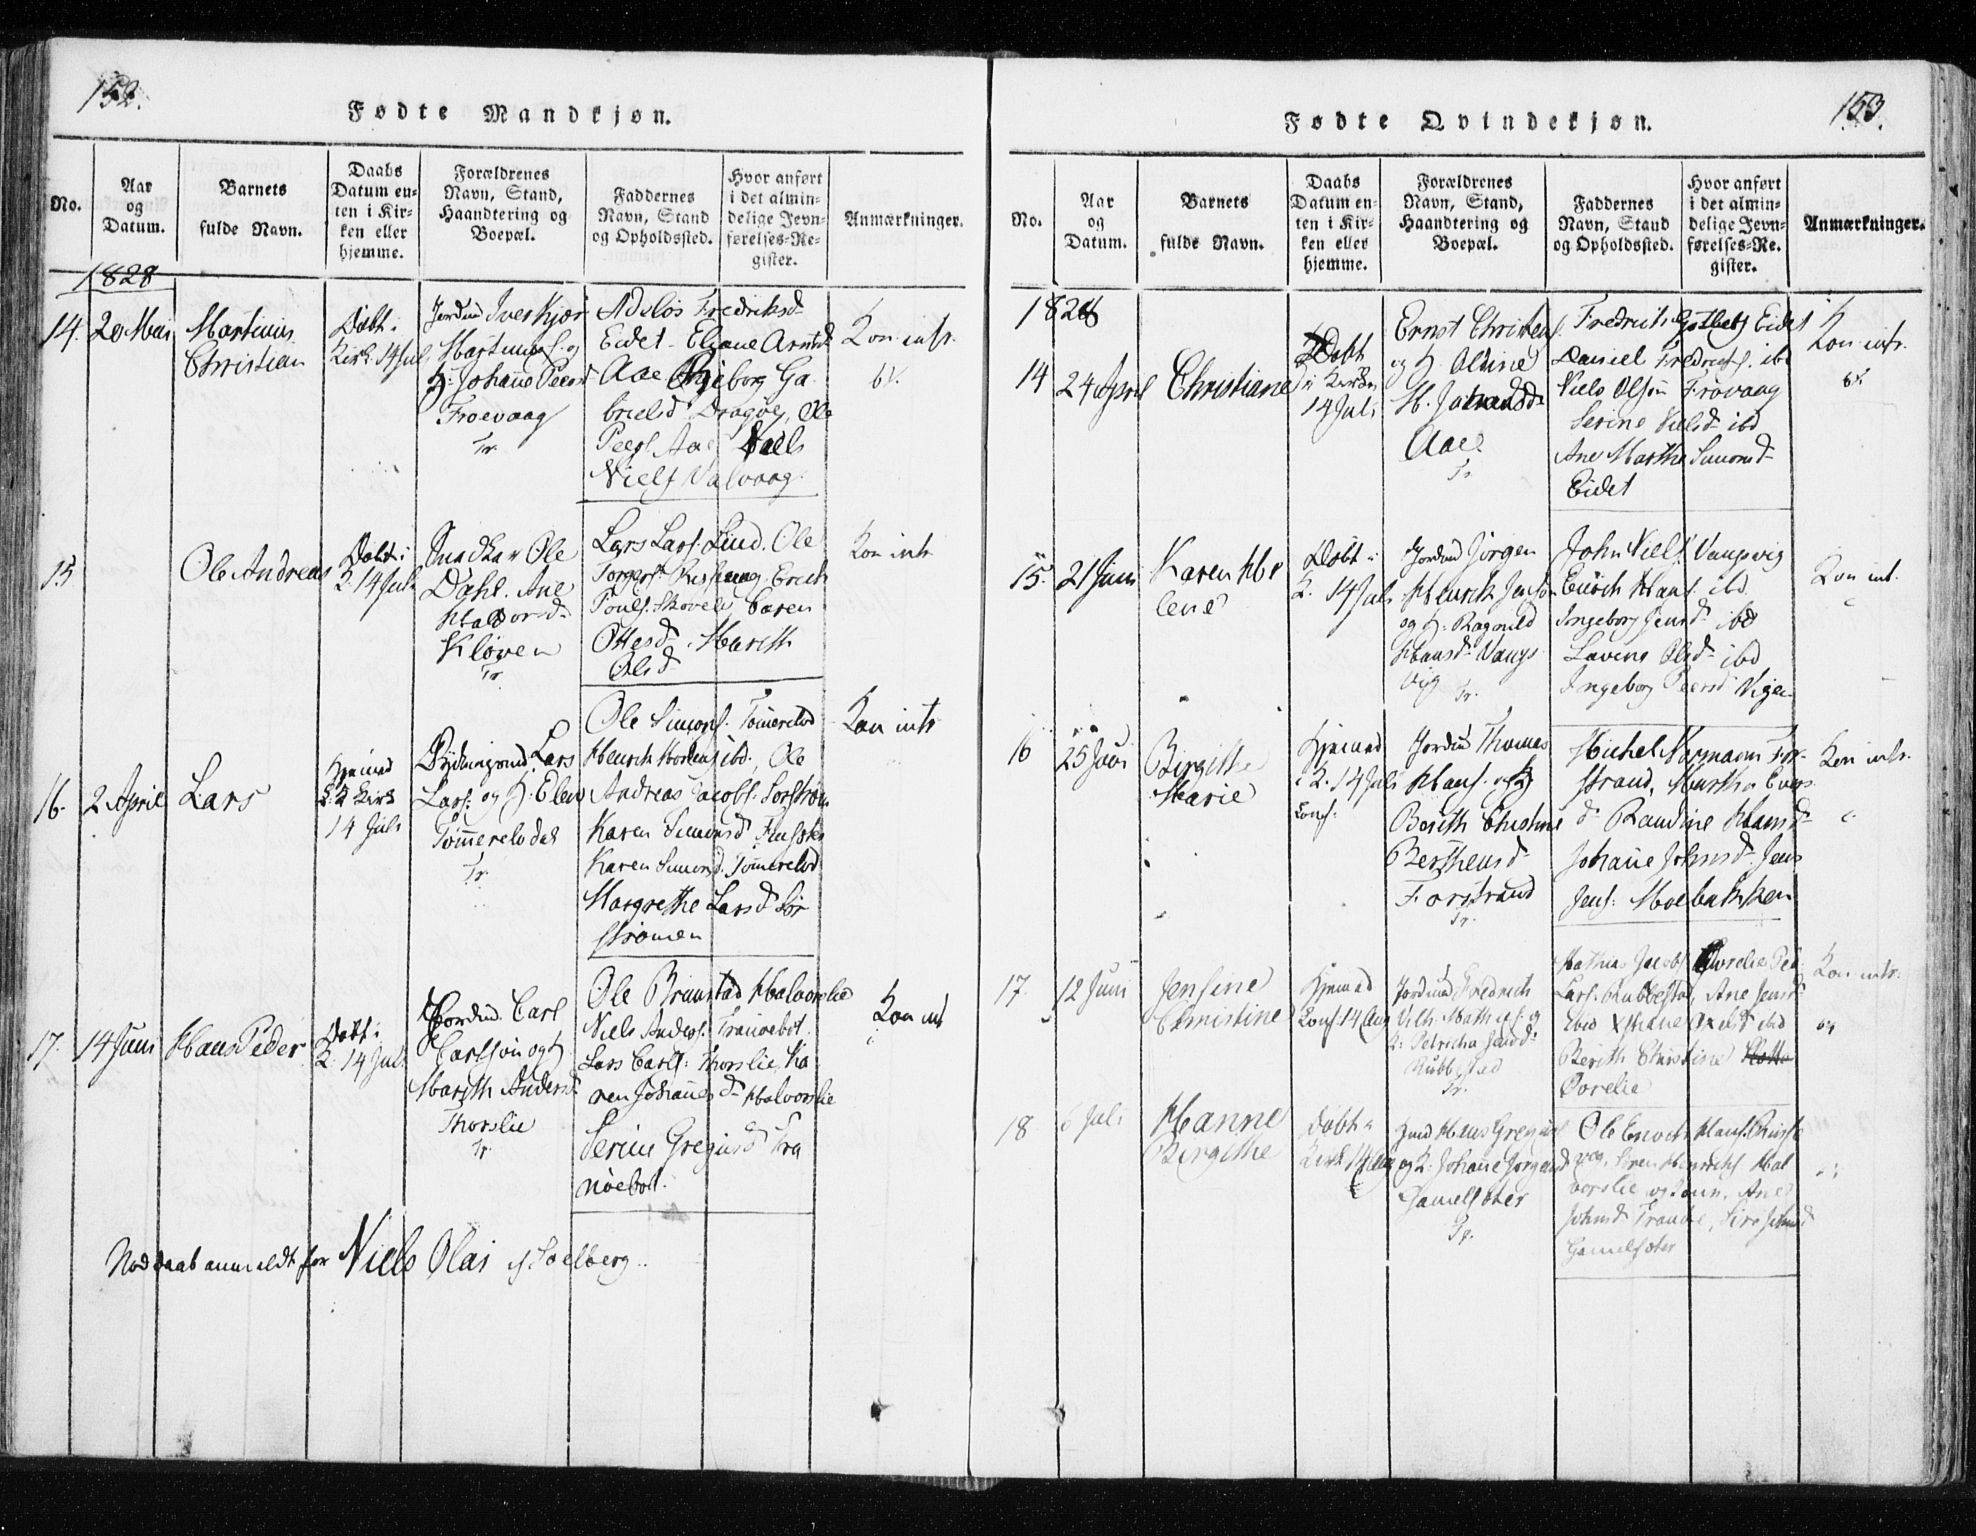 152.
Fødte Mandkjøn.
No.
Aar
og
Datum.
Barnets
fulde Navn.
Daabs
Datum en-
ten i Kir-
ken eller
hjemme.
Forældrenes
Navn, Stand,
Haandtering og
Boepæl.
Faddernes
Navn, Stand
og Opholdssted.
Hvor anført
i det almin-
delige Jevn-
førelses-Re-
gister.
Anmærkninger.
1828
14. 20 Mai
Martinus
Christian
Døbt i
Kirk. 14 Jul
Jordm Iver Kjær
Martinus. og
H: Johane Peersd
Froevaag
Tr.
Fredriksd
Eidet. Eliane Arntsd
Aae Ingeborg Ga
brielsd Dragøe, Ole
Peers. Aae
Niels. Valvaag.
Kon intr.
15
Ole Andreas
Døbt i
K. 14 Juli
Ole
Dahl. Ane
Haldorsd
Kløven
Tr.
Lars Lars. Lind. Ole
Torgers. Erich
Pouls. Skovele Caren
Ottesd. Marith
Olsd
Kon intr
16. 2 April
Lars
Hjemmed
K. 14 Juli
Rydningsmd. Lars
Lars: og H: Elen
Tømmerelvdal
Tr.
Ole Simons. Tømerelvd
Henrich ibd., Ole
Andreas Jacobs. Sørstrøm
Karen Simonsd
Karen Simonsd. Tømerelvd
Margrethe Larsd Sør
strømen
Kon intr
17. 14 Juni
Hans Peder
Døbt i
K. 14 Jul.
Jordm. Carl
Carlsøn og H
Marith Andersd
Thorslie
Tr.
Ole Brunstad Halvorslie
Niels Anders. Tranøebot.
Lars Carls: Thorslie, Ka
ren Johannesd Halvorslie
Serine Gregusd Tra
nøebot.
Kon int
Nøddaab anmeldt for Niels Olai
153.
Fødte Qvindekjøn.
No.
Aar
og
Datum.
Barnets
fulde Navn.
Daabs
Datum en-
ten i Kir-
ken eller
hjemme.
Forældrenes
Navn, Stand,
Haandtering og
Boepæl.
Faddernes
Navn, Stand
og Opholdssted.
Hvor anført
i det almin-
delige Jevn-
førelses-Re-
gister.
Anmærkninger.
1828
14 24 April
Christiane
Døbt
i Kirken
14 Juli
Ernst Christens.
og H. Oldine
M.
Aae.
Tr
Fredrich Eidet
Daniel Fredrichs. ibd
Niels Olsøn Frovaag
Serine Nielsd ibd
Ane Marthe Simonsd
Eidet
Kon intr.
15. 21 Juni
Karen He
lene
Døbt i
K. 14 Juli
Jordmd Jørgen
Henrich Jensøn
og H: Ragnild
Hansd. Vangs
vig
Tr.
John Niels. Vangsvig
Enoch Hans. ibd.
Ingeborg Jensd ibd
Lavina Olsd ibd
Ingeborg Peersd Vigen
Kon int.
16 25 Juni
Birgithe
Marie
Hjemmed
K. 14 Juli
Conf:
Jordm Thomas
Hans. og H
Berith Christine
Berthensd
Forstrand
Tr.
Michel Normann For-
strand, Martha Evers
d Randine Hansd
Johane Johnsd. Jens
Jens: Moebakken
Kon intr.
17 12 Juni
Jensine
Christine
Hjemmed
Conf. 14 Aug
Jordmd Fredrich
Vilh. Mathias. og
H: Petricha Jensd
Rubbestad
Tr.
Mathias Jacobs. Qvorelie Peder
Lars. Rubbestad, Ane Jensd
ibid ibid
Berith Christine
Qvorelie
Kon intr.
18 6 Juli
Hanne
Birgithe
Døbt i
Kirk 14 Aug
Hans Gregus.
og H: Johane Jørgensd
Gamelsæter
Tr.
Ole Enoch Hans.
Søren Henrichs. Hal
vorslie Ane
Johnsd Tranøe,
Gamelsæter